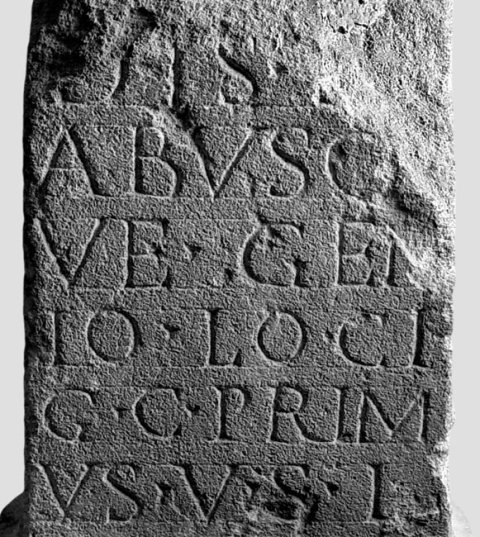 DIS ·
ABVSQ
VE · GEN
IO · LOCI
G · C · PRIM
VS · V · S · L